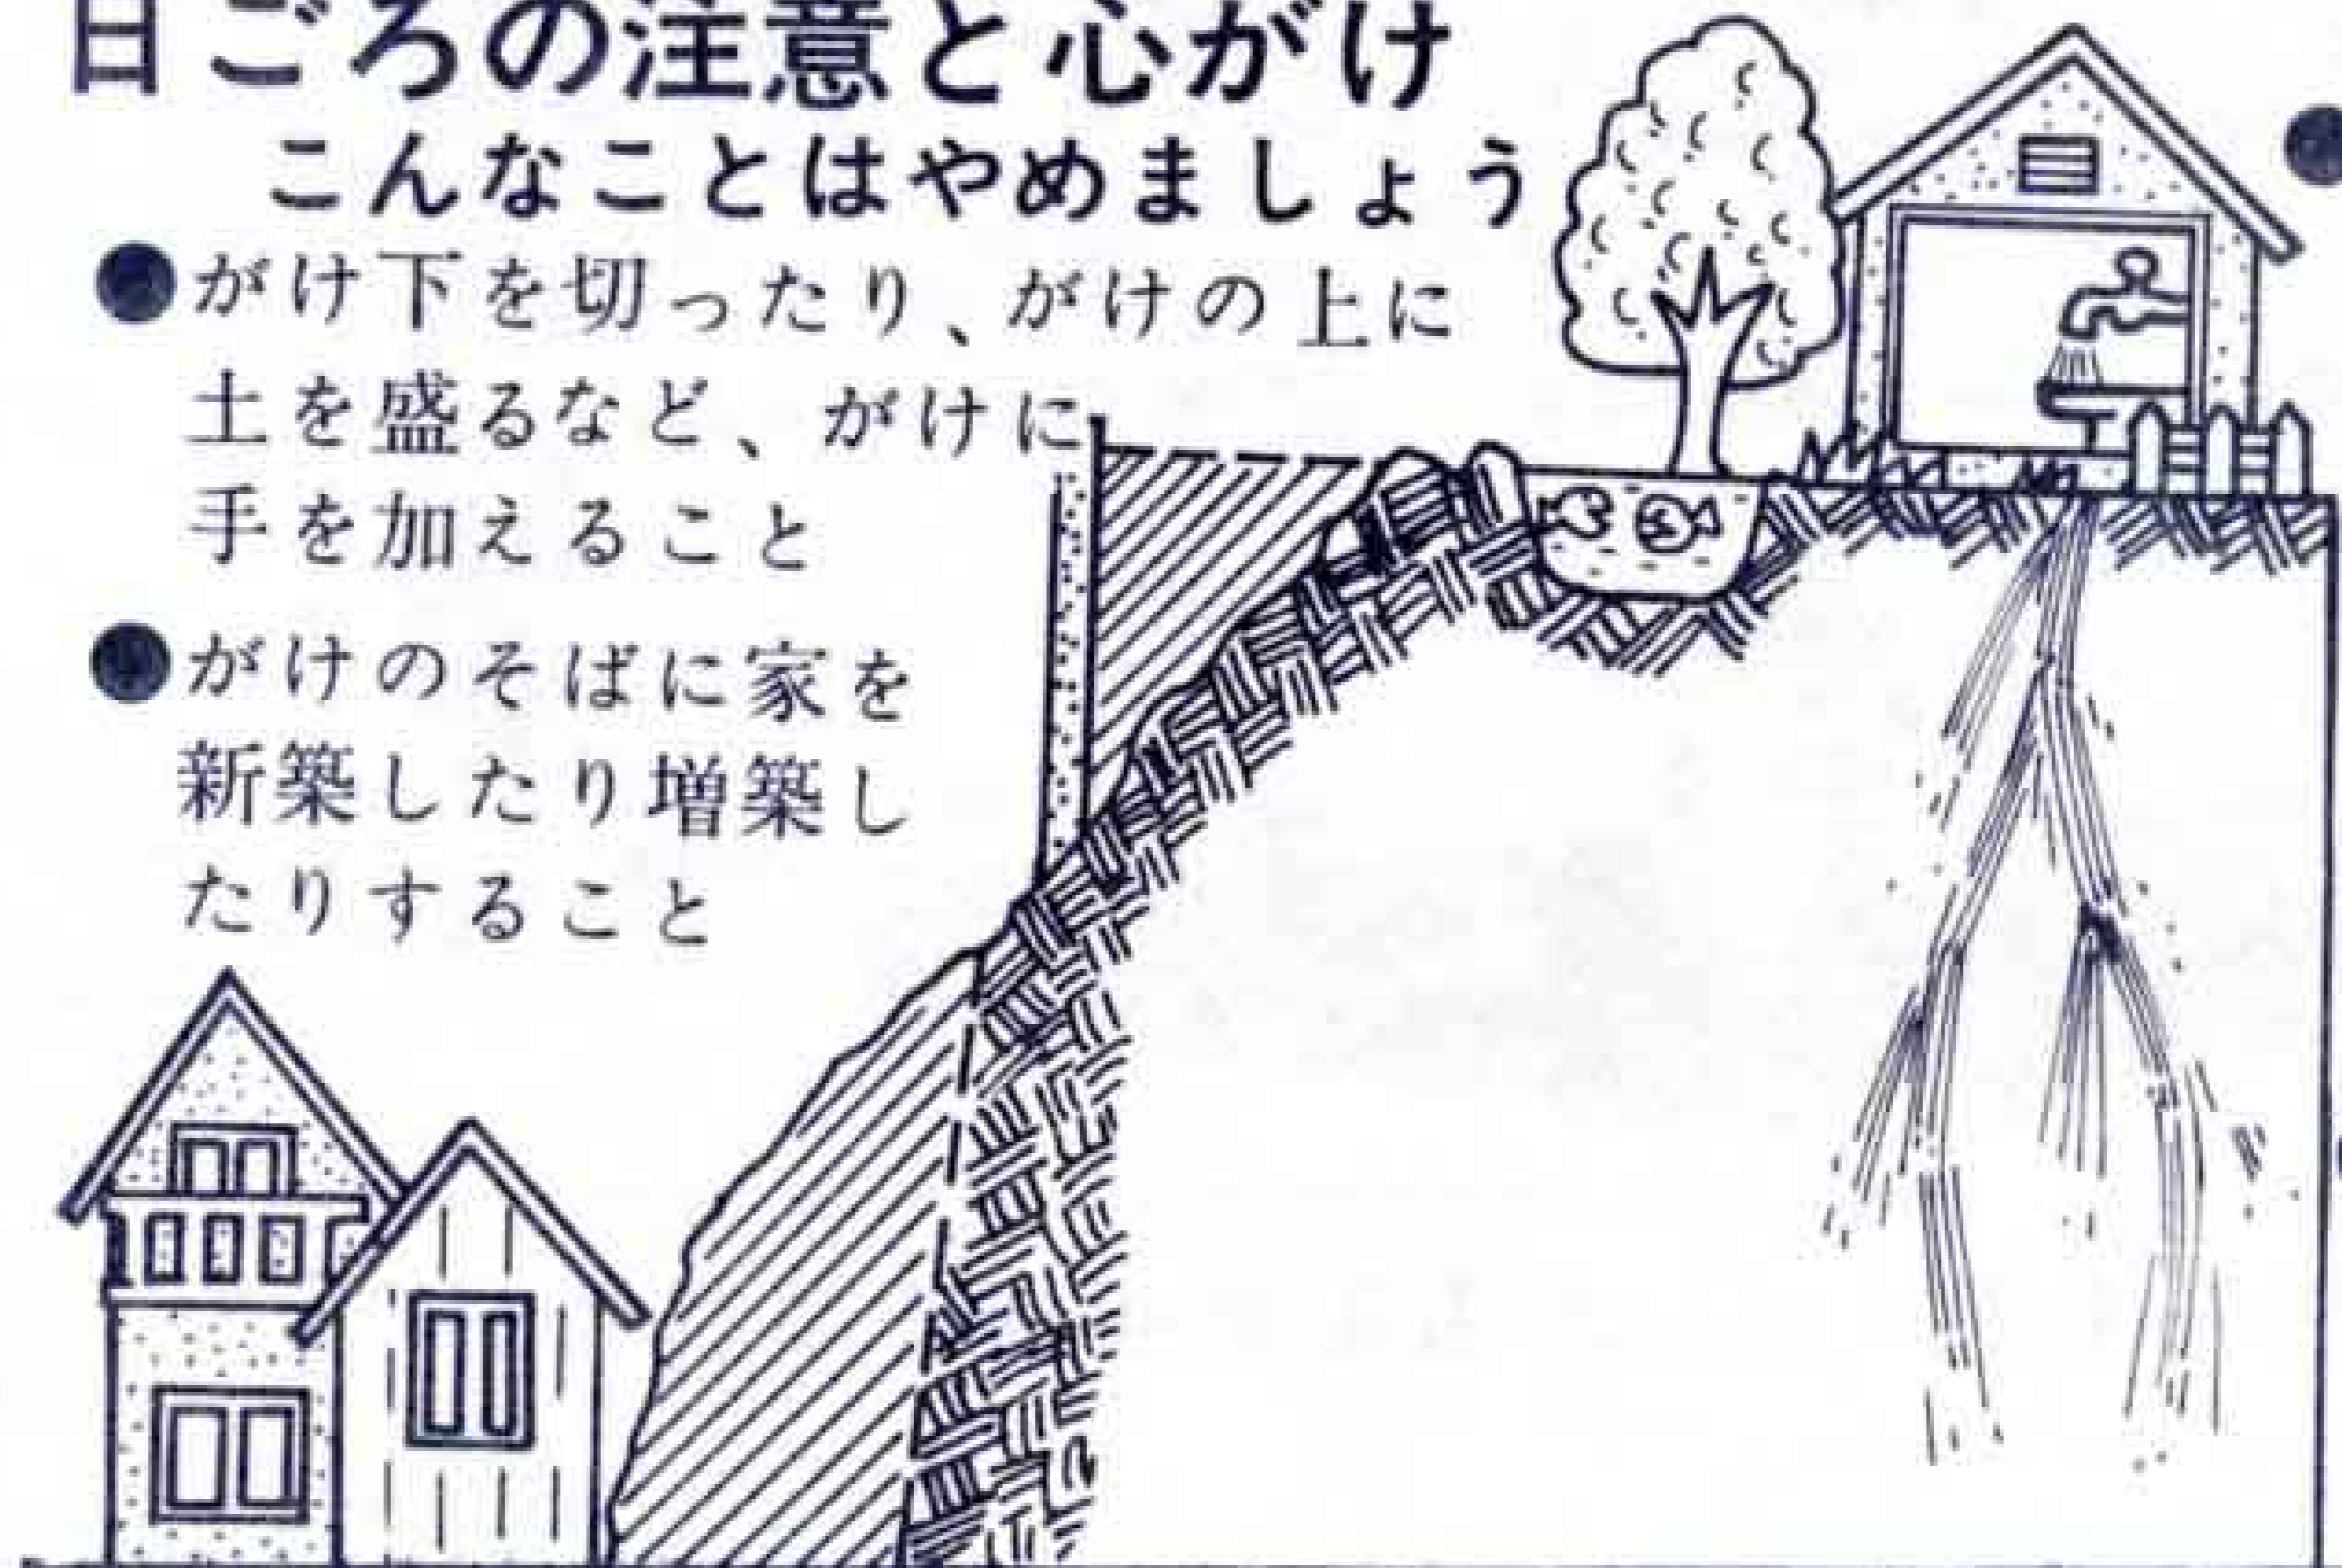 日ごろの注意と心がけ
こんなことはやめましょう
●がけ下を切ったり、がけの上に
土を盛るなど、がけに
手を加えること
●がけのそばに家を
新築したり増築し
たりすること